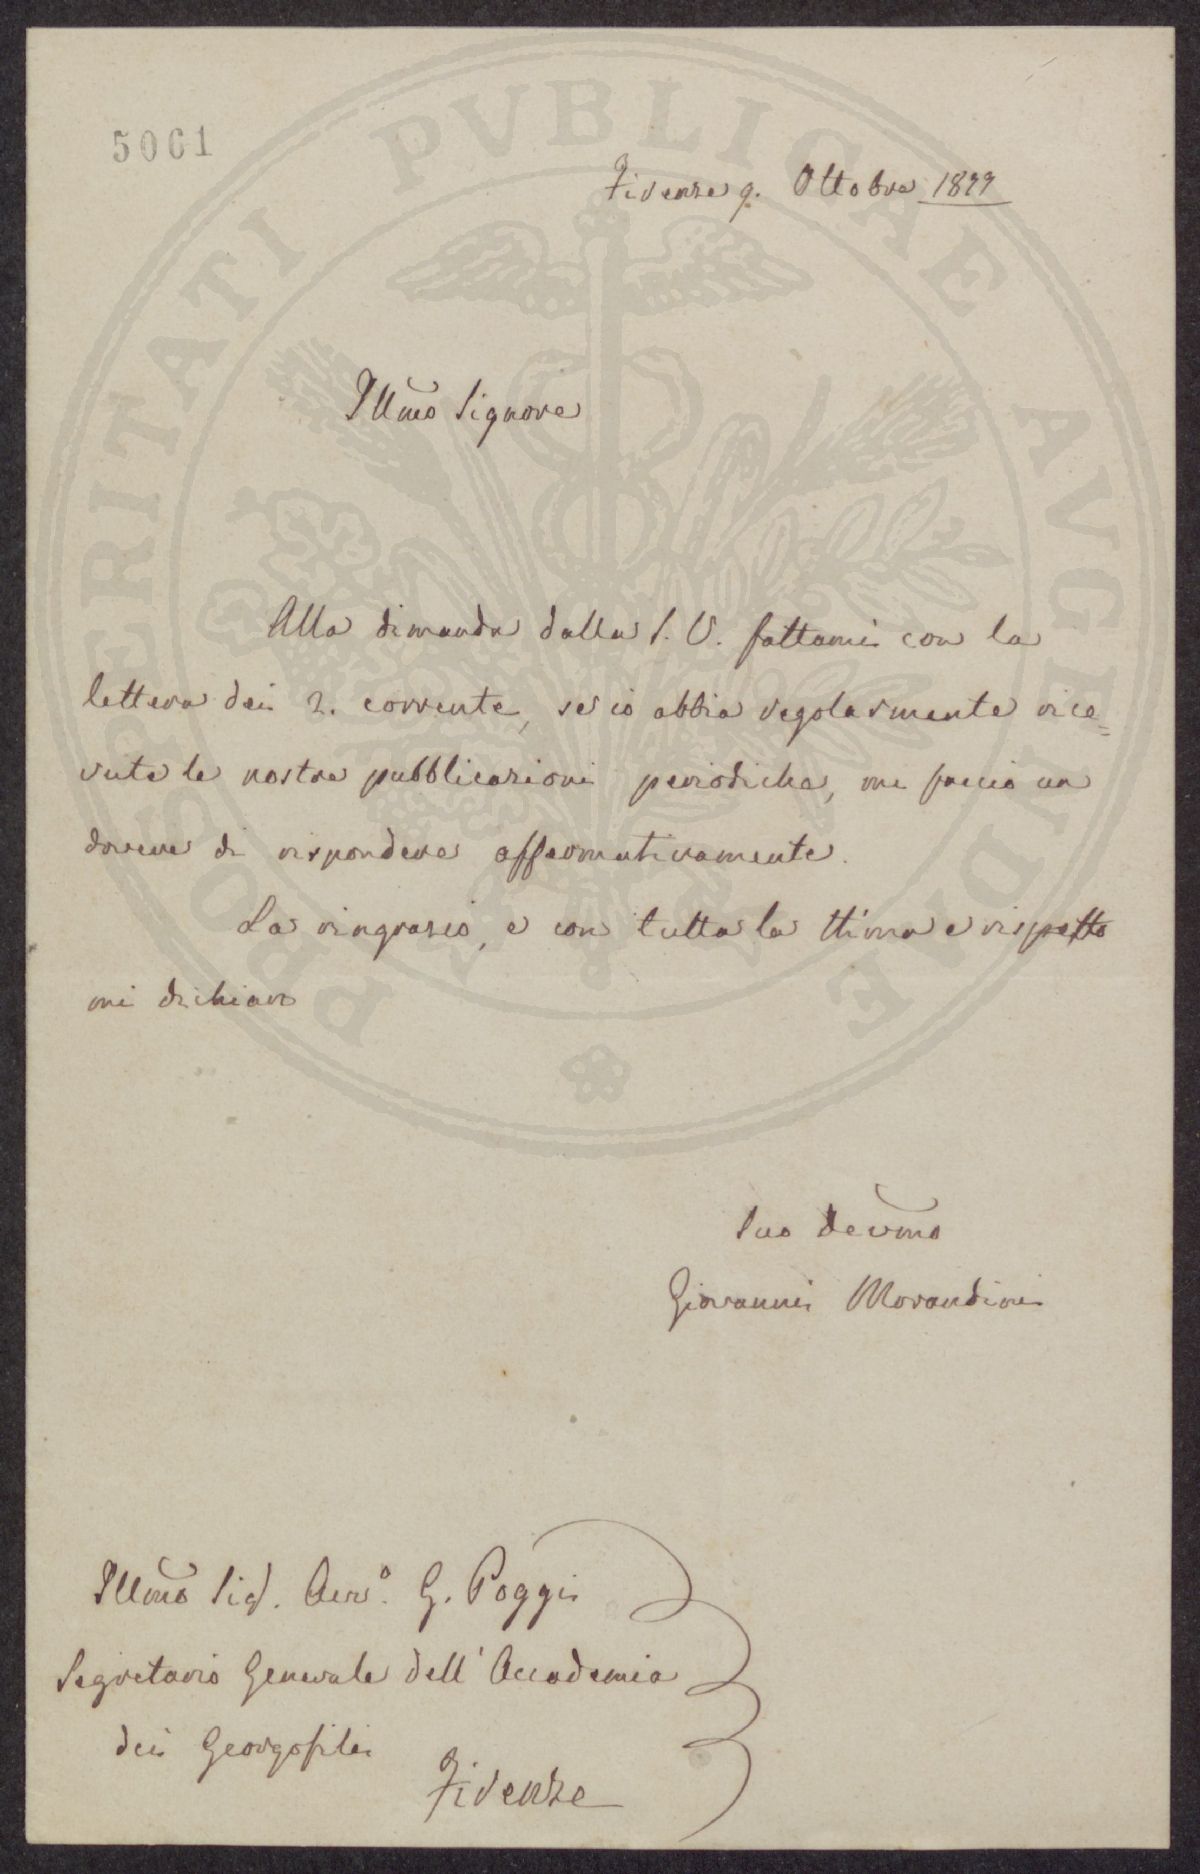 5061
Firenze 9. Ottobre 1877
Illmo Signore
Alla dimanda dalla S. V. fattami con la
lettera dei 2. corrente, se io abbia regolarmente rice=
vute le nostre pubblicazioni periodiche, mi faccio un
dovere di rispondere affermativamente.
La ringrazio, e con tutta la stima e rispetto
mi dichiaro
Suo devmo
Giovanni Morandini
Illmo Sig. G. Poggi
Segretario Generale dell' Accademia
dei Georgofili
Firenze
PROSPERITATI PVBLICAE AVGENDAE